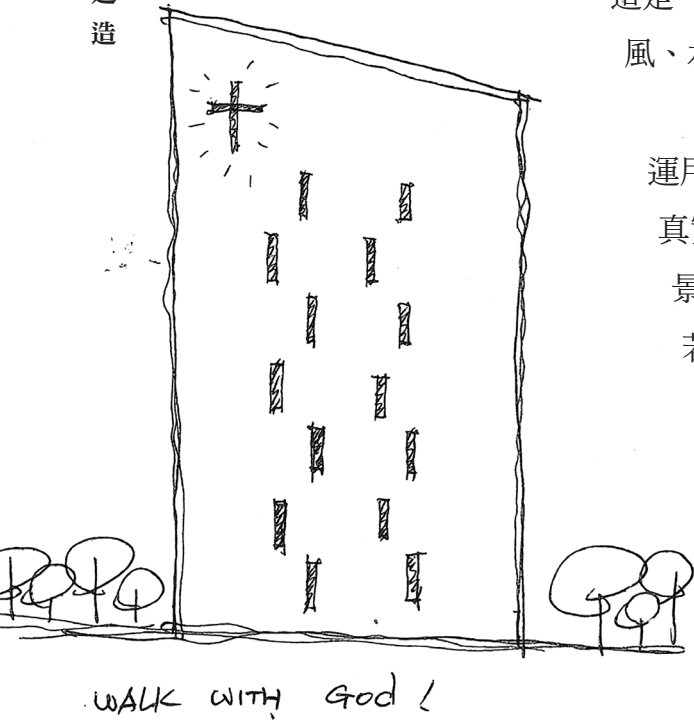 造
風、
運用
真實
景
若
WALK WITH GOD !